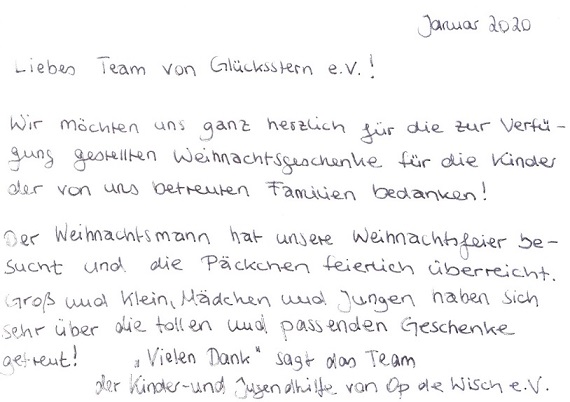 Januar 2020
Liebes Team von Glücksstern e.V.!
Wir möchten uns ganz herzlich für die zur Verfü-
gung gestellten Weihnachtsgeschenke für die Kinder
der von uns betreuten Familien bedanken!
Der Weihnachtsmann hat unsere Weihnachtsfeier be-
sucht und die Päckchen feierlich überreicht.
Groß und Klein, Mädchen und Jungen haben sich
sehr über die tollen und passenden Geschenke
gefreut! "Vielen Dank" sagt das Team
der Kinder- und Jugendhilfe von Op de Wisch e.V.